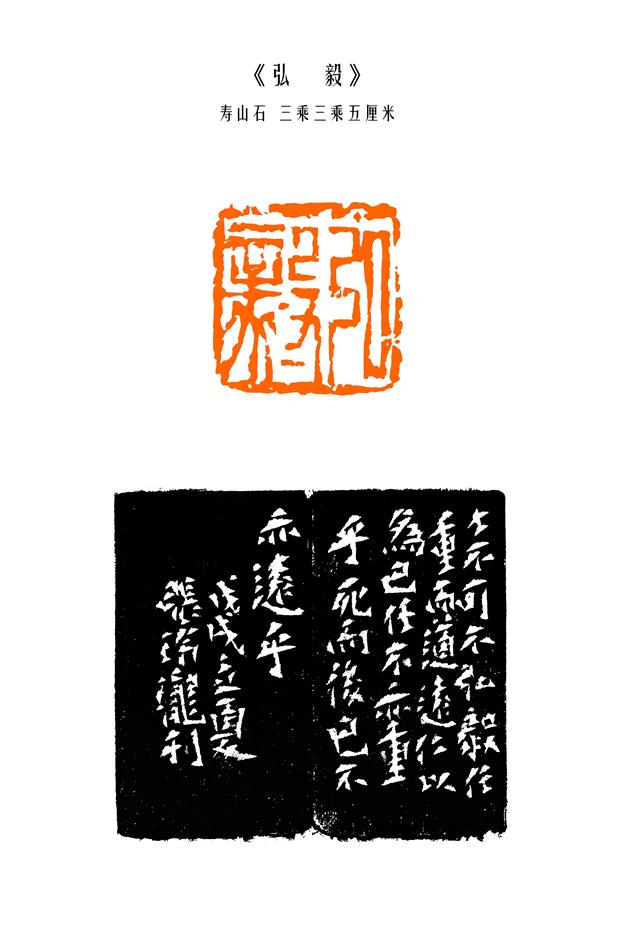 《弘 毅》
寿山石 三乘三乘五厘米
弘毅
士不可不弘毅任
重而道遠仁以
為己任不亦重
乎死而後已不
亦遠乎
戊戌立夏
張玲瓏利